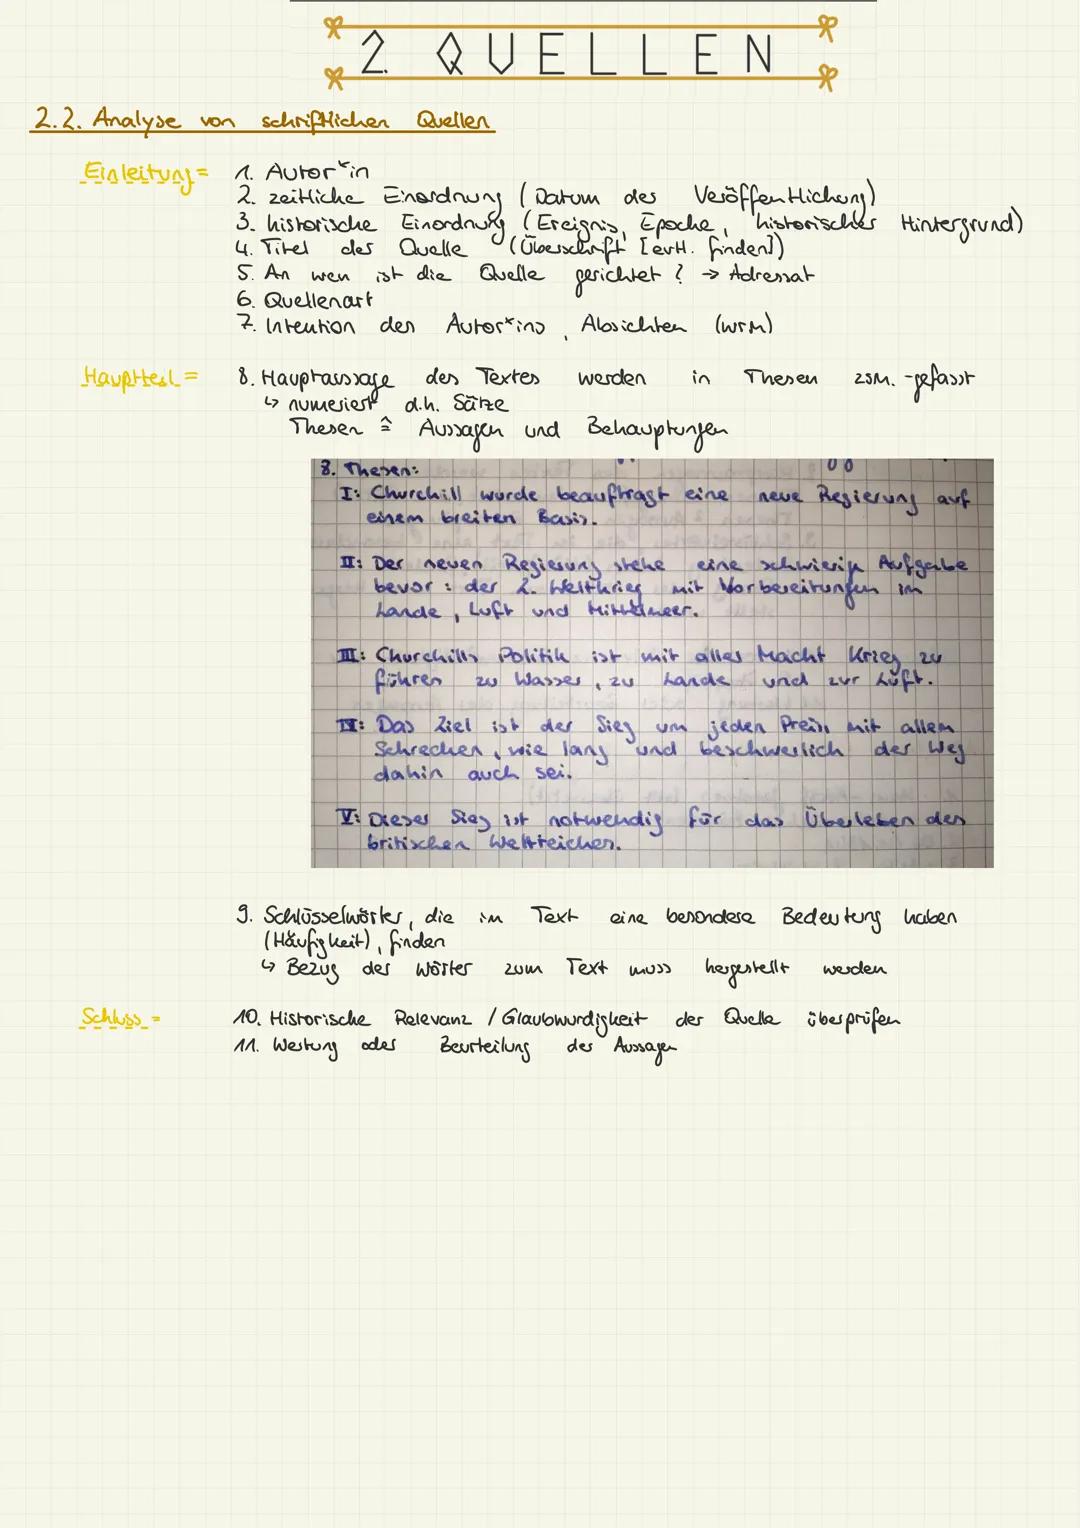 2. QUELLEN
2.2. Analyse von schriftlichen Quellen
Einleitung = 1. Autor*in
2. zeitliche Einordnung (Datum des Veröffentlichung)
3. historische Einordnung (Ereignis, Epoche, historischer Hintergrund)
4. Titel der Quelle (Überschrift [evtl. finden])
5. An wen ist die Quelle gerichtet? → Adressat
6. Quellenart
7. Intention des Autor*ins, Absichten (wrm)
Hauptteil = 8. Hauptaussage des Textes werden in Thesen zsm.-gefasst
↳ numeriert d.h. Sätze
Thesen ≙ Aussagen und Behauptungen
8. Thesen:
I: Churchill wurde beauftragt eine neue Regierung auf
einem breiten Basis.
II: Der neuen Regierung stehe eine schwierige Aufgabe
bevor: der 2. Weltkrieg mit Vorbereitungen im
Lande, Luft und Mittelmeer.
III: Churchills Politik ist mit aller Macht Krieg zu
führen zu Wasser, zu Lande und zur Luft.
IV: Das Ziel ist der Sieg um jeden Preis, mit allem
Schrecken, wie lang und beschwerlich der Weg
dahin auch sei.
V: Dieser Sieg ist notwendig für das Überleben des
britischen Weltreiches.
9. Schlüsselwörter, die im Text eine besondere Bedeutung haben
(Häufigkeit), finden
↳ Bezug der Wörter zum Text muss hergestellt werden
Schluss = 10. Historische Relevanz / Glaubwürdigkeit der Quelle überprüfen
11. Wertung oder Beurteilung der Aussagen